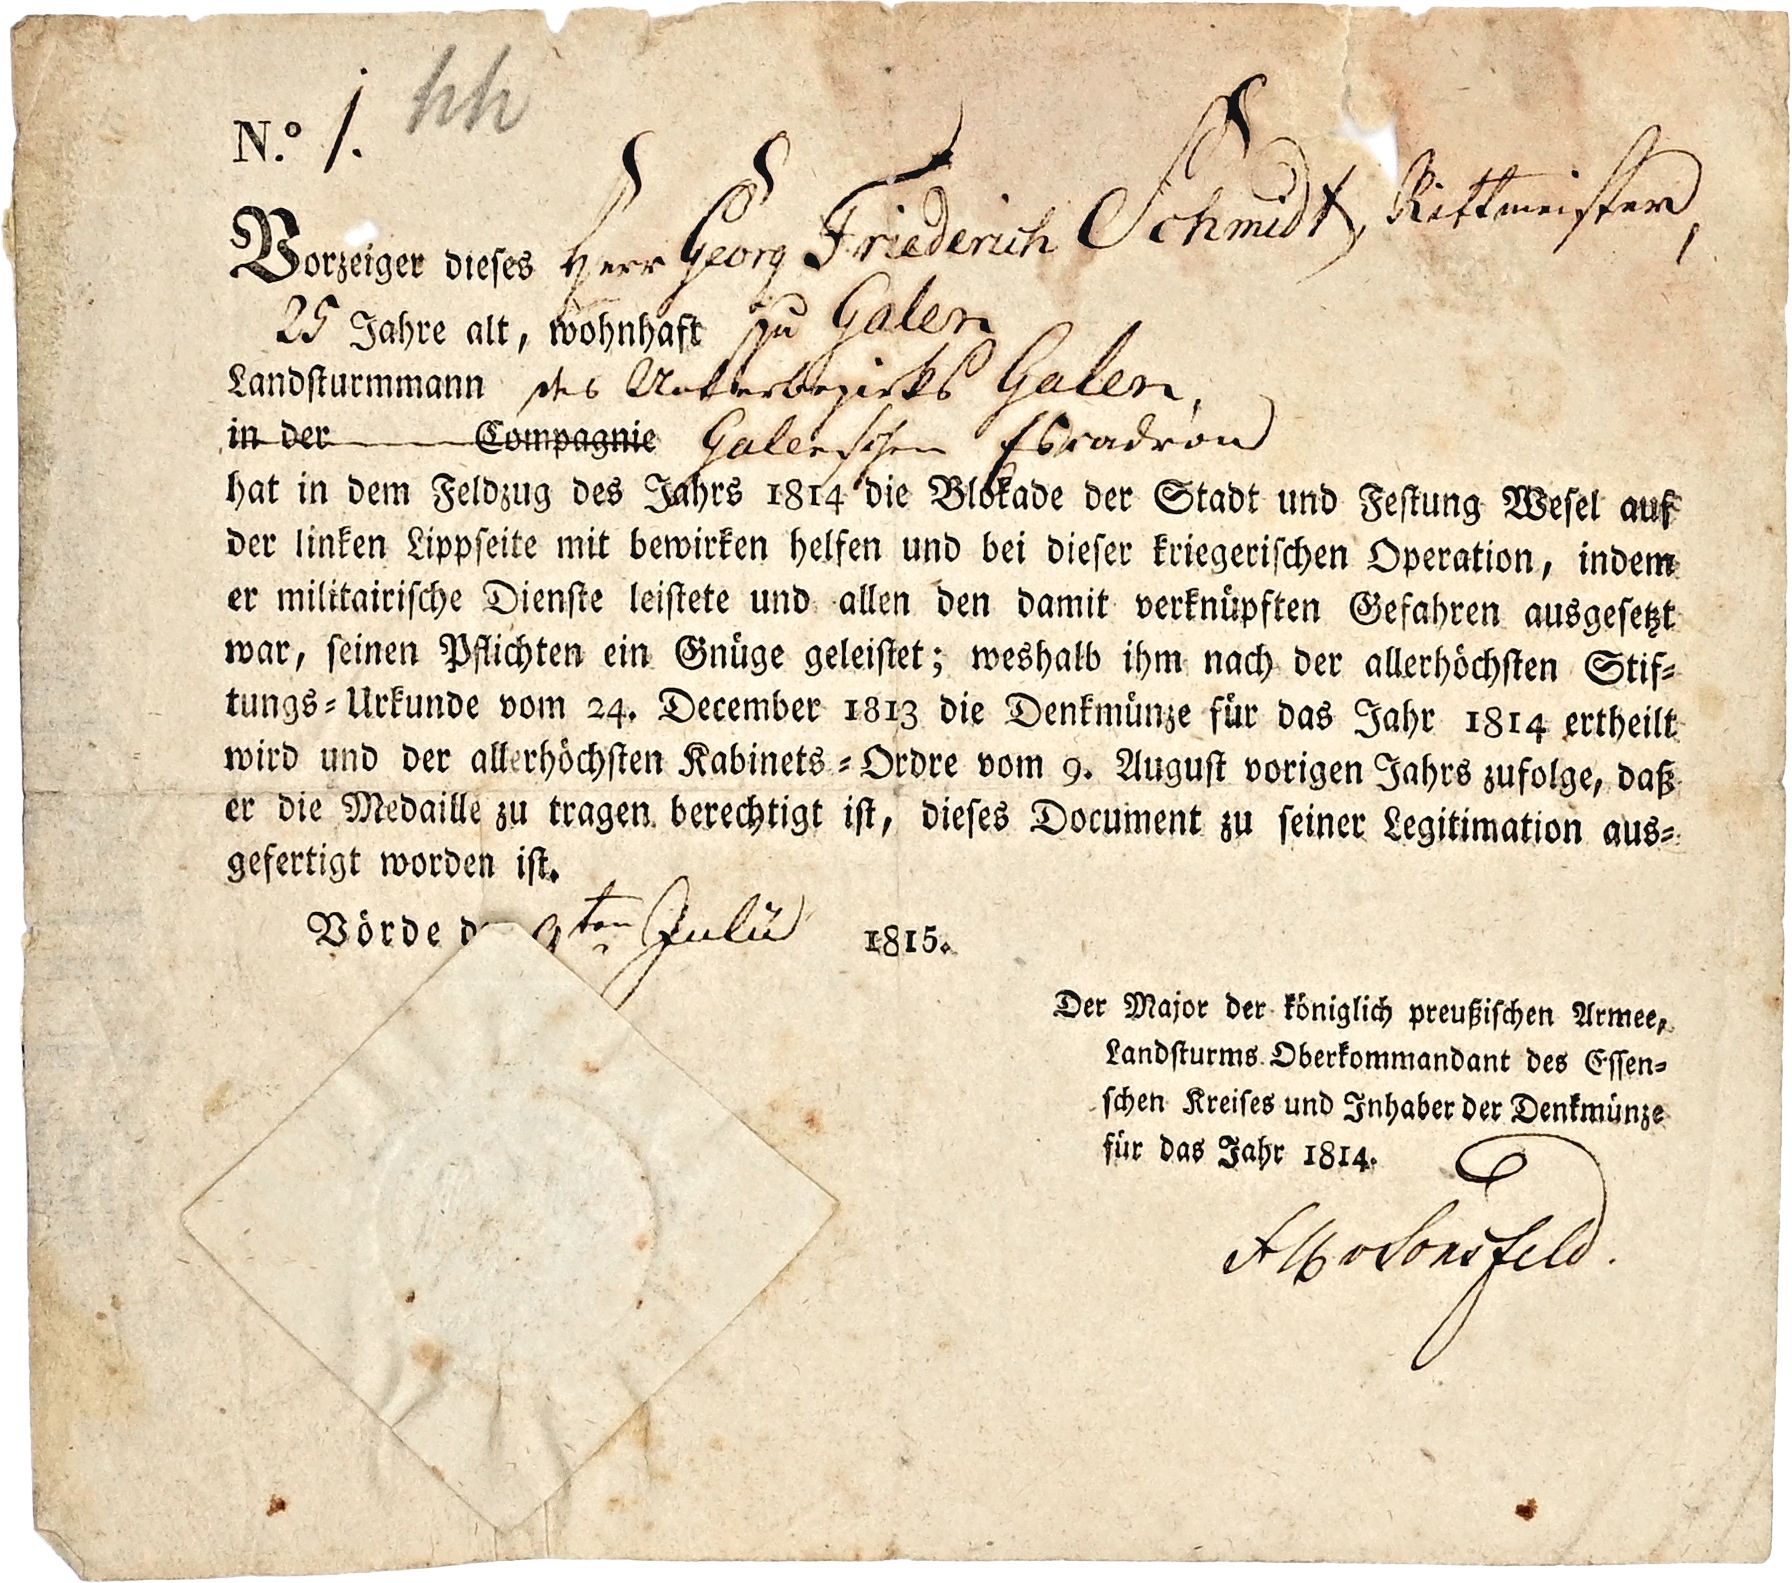 N.º 1. hh
Vorzeiger dieses Herr Georg Friederich Schmidt, Rittmeister,
25 Jahre alt, wohnhaft zu Galen
Landsturmmann des Unterbezirks Galen,
in der Compagnie Galenschen Escadron
hat in dem Feldzug des Jahrs 1814 die Blokade der Stadt und Festung Wesel auf
der linken Lippseite mit bewirken helfen und bei dieser kriegerischen Operation, indem
er militairische Dienste leistete und allen den damit verknüpften Gefahren ausgesetzt
war, seinen Pflichten ein Gnüge geleistet; weshalb ihm nach der allerhöchsten Stif-
tungs-Urkunde vom 24. December 1813 die Denkmünze für das Jahr 1814 ertheilt
wird und der allerhöchsten Kabinets-Ordre vom 9. August vorigen Jahrs zufolge, daß
er die Medaille zu tragen berechtigt ist, dieses Document zu seiner Legitimation aus-
gefertigt worden ist.
Vörde d 9ten Julii 1815.
Der Major der königlich preußischen Armee,
Landsturms Oberkommandant des Essen-
schen Kreises und Inhaber der Denkmünze
für das Jahr 1814.